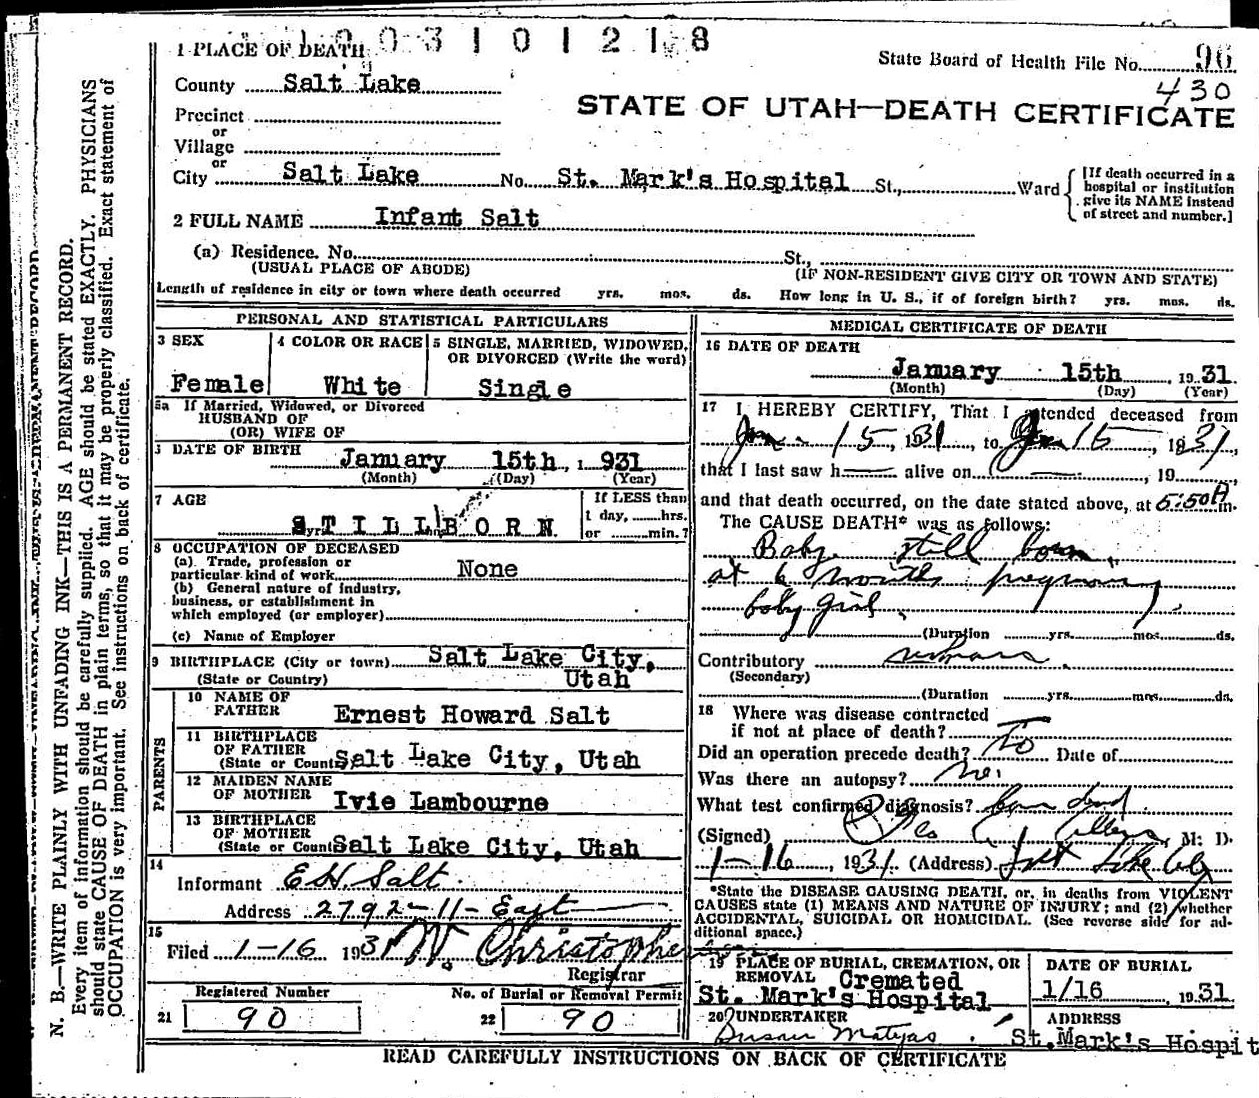 1 0 0 3 1 0 1 2 1 8
1 PLACE OF DEATH
State Board of Health File No. 96
430
County Salt Lake
STATE OF UTAH—DEATH CERTIFICATE
Precinct
or
Village
or
City Salt Lake No. St. Mark's Hospital St., Ward
[If death occurred in a hospital or institution give its NAME instead of street and number.]
2 FULL NAME Infant Salt
(a) Residence. No. St.,
(USUAL PLACE OF ABODE) (IF NON-RESIDENT GIVE CITY OR TOWN AND STATE)
Length of residence in city or town where death occurred yrs. mos. ds. How long in U. S., if of foreign birth? yrs. mos. ds.
PERSONAL AND STATISTICAL PARTICULARS
3 SEX
Female
4 COLOR OR RACE
White
5 SINGLE, MARRIED, WIDOWED,
OR DIVORCED (Write the word)
Single
5a If Married, Widowed, or Divorced
HUSBAND OF
(OR) WIFE OF
DATE OF BIRTH January 15th, 1931
(Month) (Day) (Year)
7 AGE
If LESS than
1 day, hrs.
or min.?
S T I L L B O R N
8 OCCUPATION OF DECEASED
(a) Trade, profession or
particular kind of work None
(b) General nature of industry,
business, or establishment in
which employed (or employer)
(c) Name of Employer
9 BIRTHPLACE (City or town) Salt Lake City,
(State or Country) Utah
PARENTS
10 NAME OF
FATHER Ernest Howard Salt
11 BIRTHPLACE
OF FATHER
(State or Count Salt Lake City, Utah
12 MAIDEN NAME
OF MOTHER Ivie Lambourne
13 BIRTHPLACE
OF MOTHER
(State or Count Salt Lake City, Utah
14
Informant E H. Salt
Address 2792-11-East
15
Filed 1-16 1931
Registrar
Registered Number
21 90
No. of Burial or Removal Permit
22 90
MEDICAL CERTIFICATE OF DEATH
16 DATE OF DEATH
January 15th, 1931.
(Month) (Day) (Year)
17 I HEREBY CERTIFY, That I attended deceased from
Jan. 15, 1931, to Jan 15, 1931,
that I last saw h alive on , 19
and that death occurred, on the date stated above, at 5:50 A m.
The CAUSE DEATH* was as follows:
Baby still born
at 6 months pregnancy
baby girl.
(Duration yrs. mos. ds.
Contributory
(Secondary)
(Duration yrs. mos. ds.
18 Where was disease contracted
if not at place of death?
Did an operation precede death? No Date of
Was there an autopsy? no.
What test confirmed diagnosis? born dead
(Signed) M. D.
1-16, 1931. (Address) Salt Lake City
*State the DISEASE CAUSING DEATH, or, in deaths from VIOLENT
CAUSES state (1) MEANS AND NATURE OF INJURY; and (2) whether
ACCIDENTAL, SUICIDAL OR HOMICIDAL. (See reverse side for ad-
ditional space.)
19 PLACE OF BURIAL, CREMATION, OR
REMOVAL Cremated
St. Mark's Hospital
DATE OF BURIAL
1/16, 1931
20 UNDERTAKER
ADDRESS
St. Mark's Hospit
READ CAREFULLY INSTRUCTIONS ON BACK OF CERTIFICATE
N. B.—WRITE PLAINLY WITH UNFADING INK—THIS IS A PERMANENT RECORD.
Every item of information should be carefully supplied. AGE should be stated EXACTLY. PHYSICIANS
should state CAUSE OF DEATH in plain terms, so that it may be properly classified. Exact statement of
OCCUPATION is very important. See instructions on back of certificate.